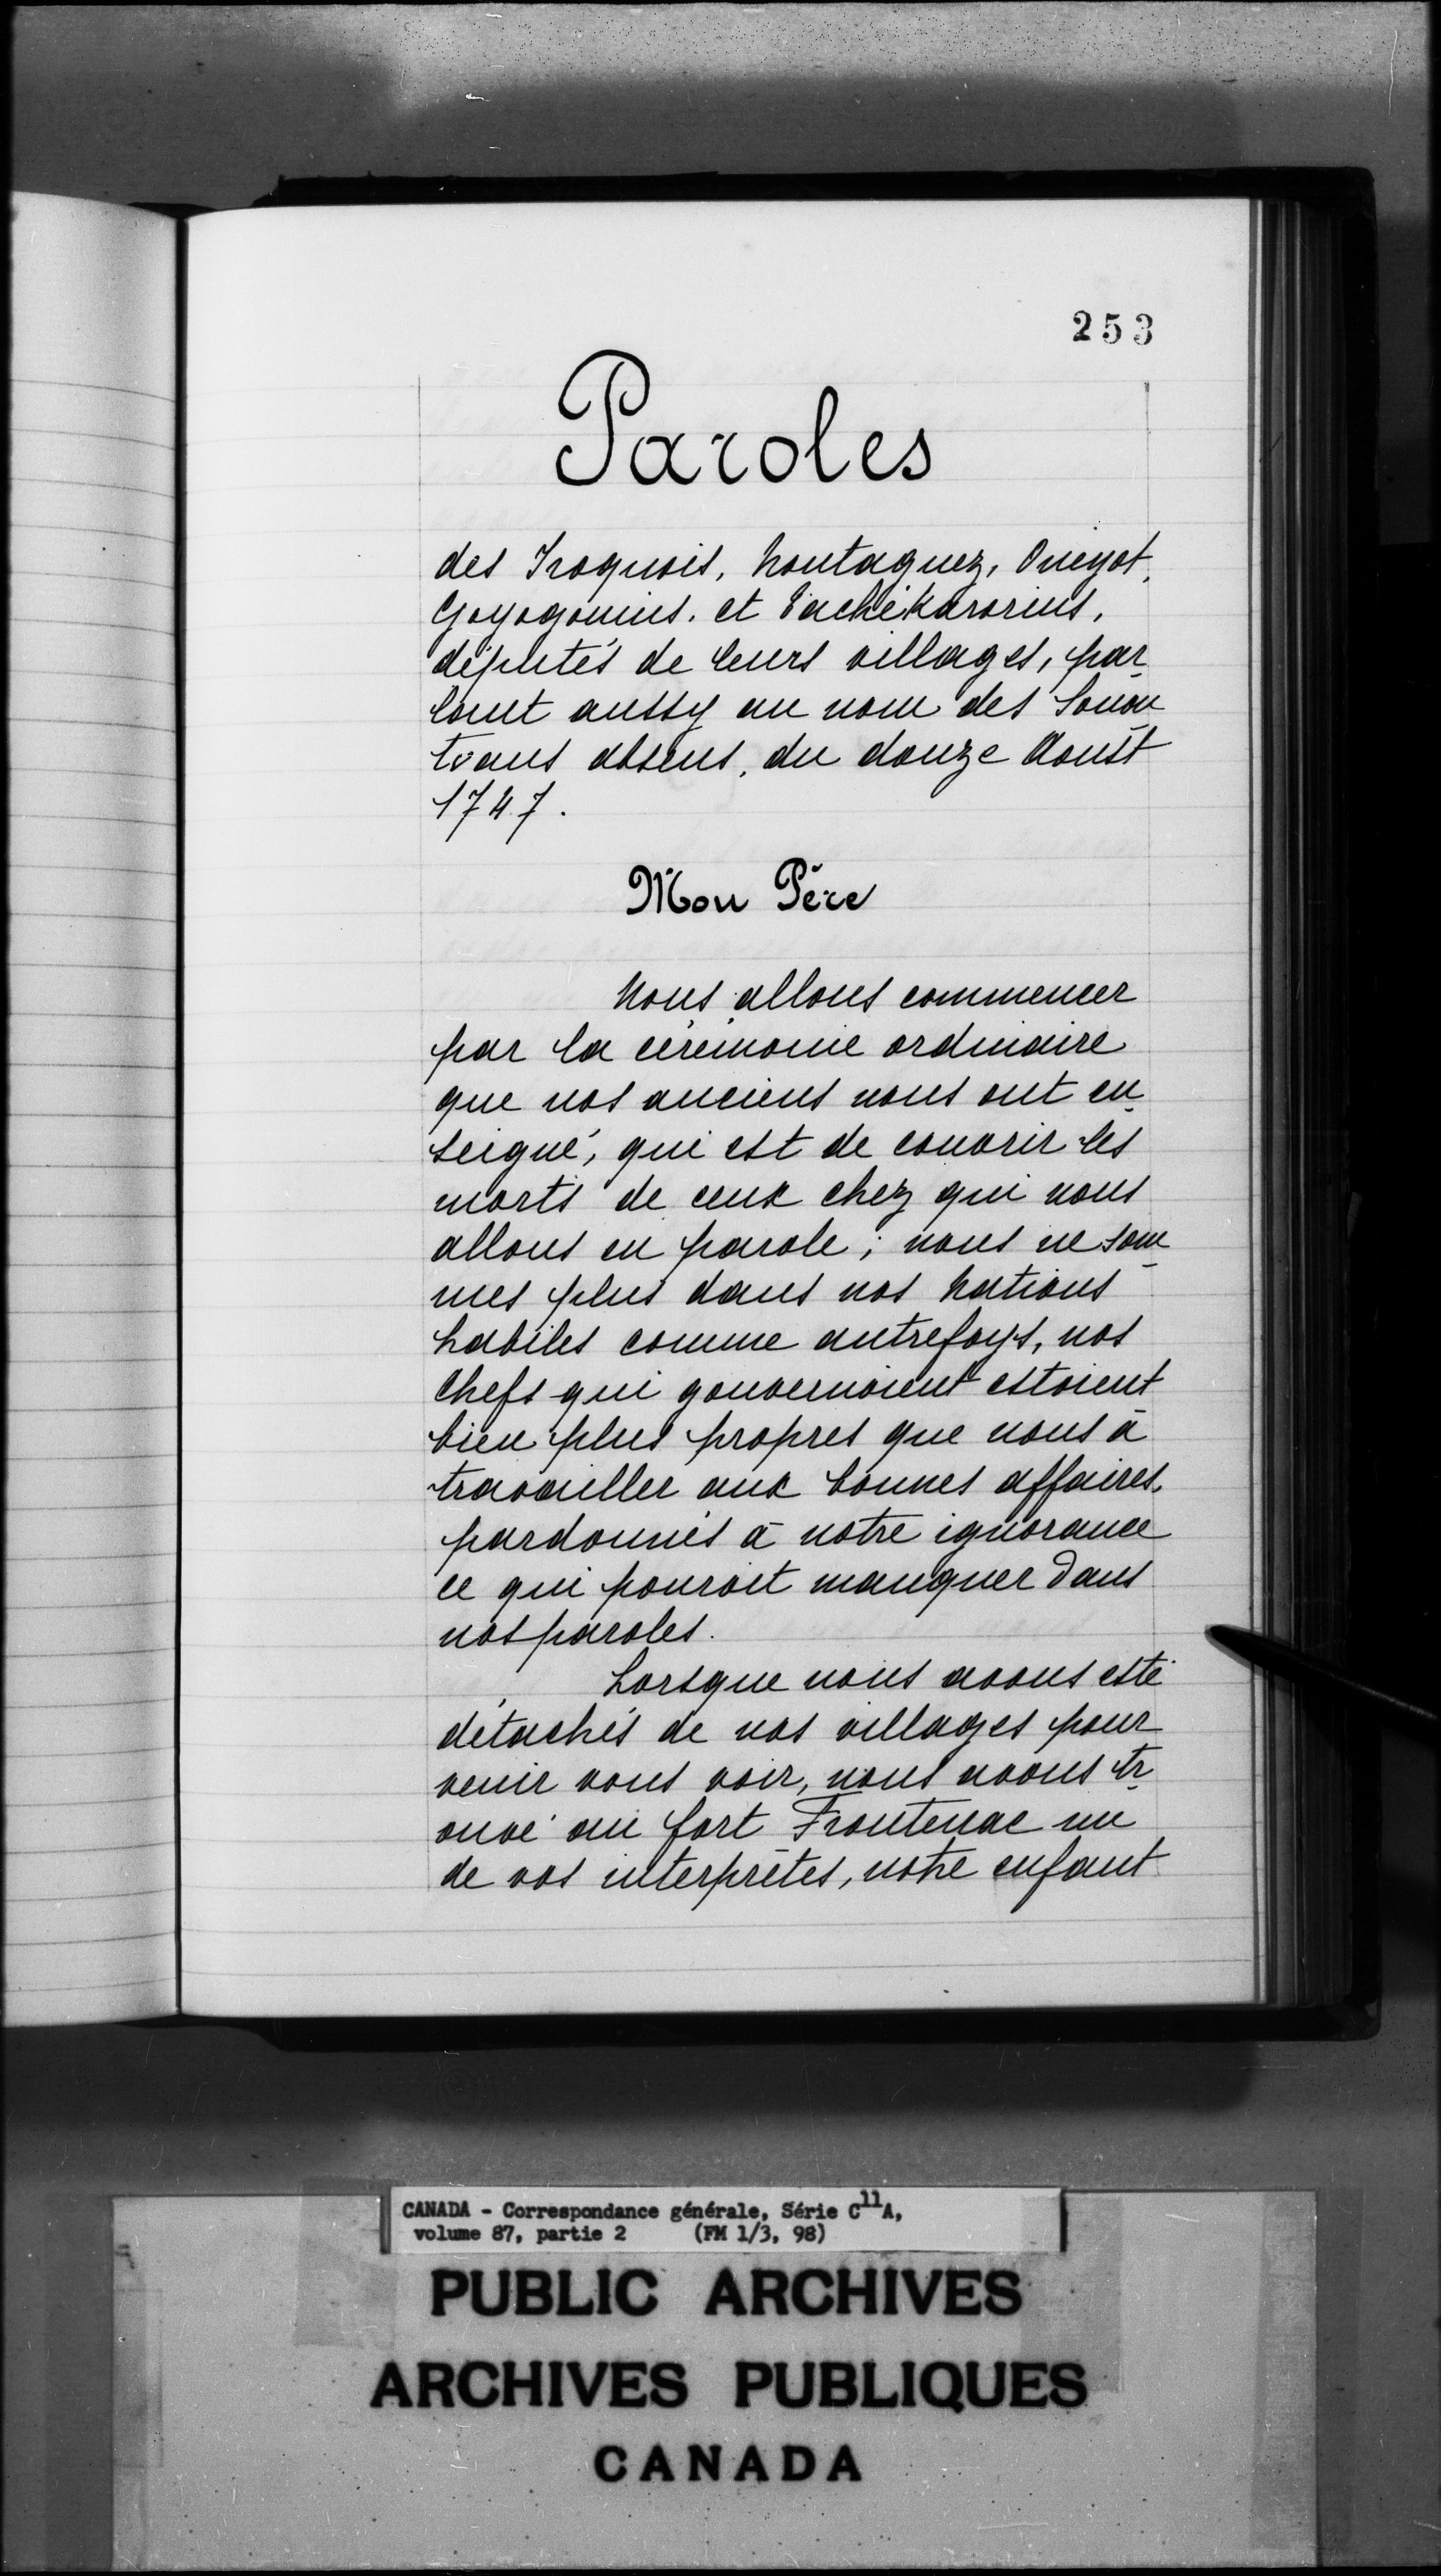 253
Paroles
des Iroquois, Nontaguez, Oneyot,
Goyogouins. et Tachékarorins,
députés de leurs villages, par
lant aussy au nom des Sonon
tvans absens, du douze Aoust
1747.
Mon Père
Nous allons commencer
par la cérémonie ordinaire
que nos anciens nous ont en
seigné, qui est de couvrir les
morts de ceux chez qui nous
allons en parole; nous ne som
mes plus dans nos Nations
habiles comme autrefoys, nos
Chefs qui gouvernoient estoient
bien plus propres que nous à
travailler aux bonnes affaires,
pardonnés à notre ignorance
ce qui pouroit manquer dans
nos paroles.
Lorsque nous avons esté
détachés de nos villages pour
venir vous voir, nous avons tr
ouvé au fort Frontenac un
de vos interprètes, notre enfant
CANADA - Correspondance générale, Série C11A,
volume 87, partie 2 (FM 1/3, 98)
PUBLIC ARCHIVES
ARCHIVES PUBLIQUES
CANADA